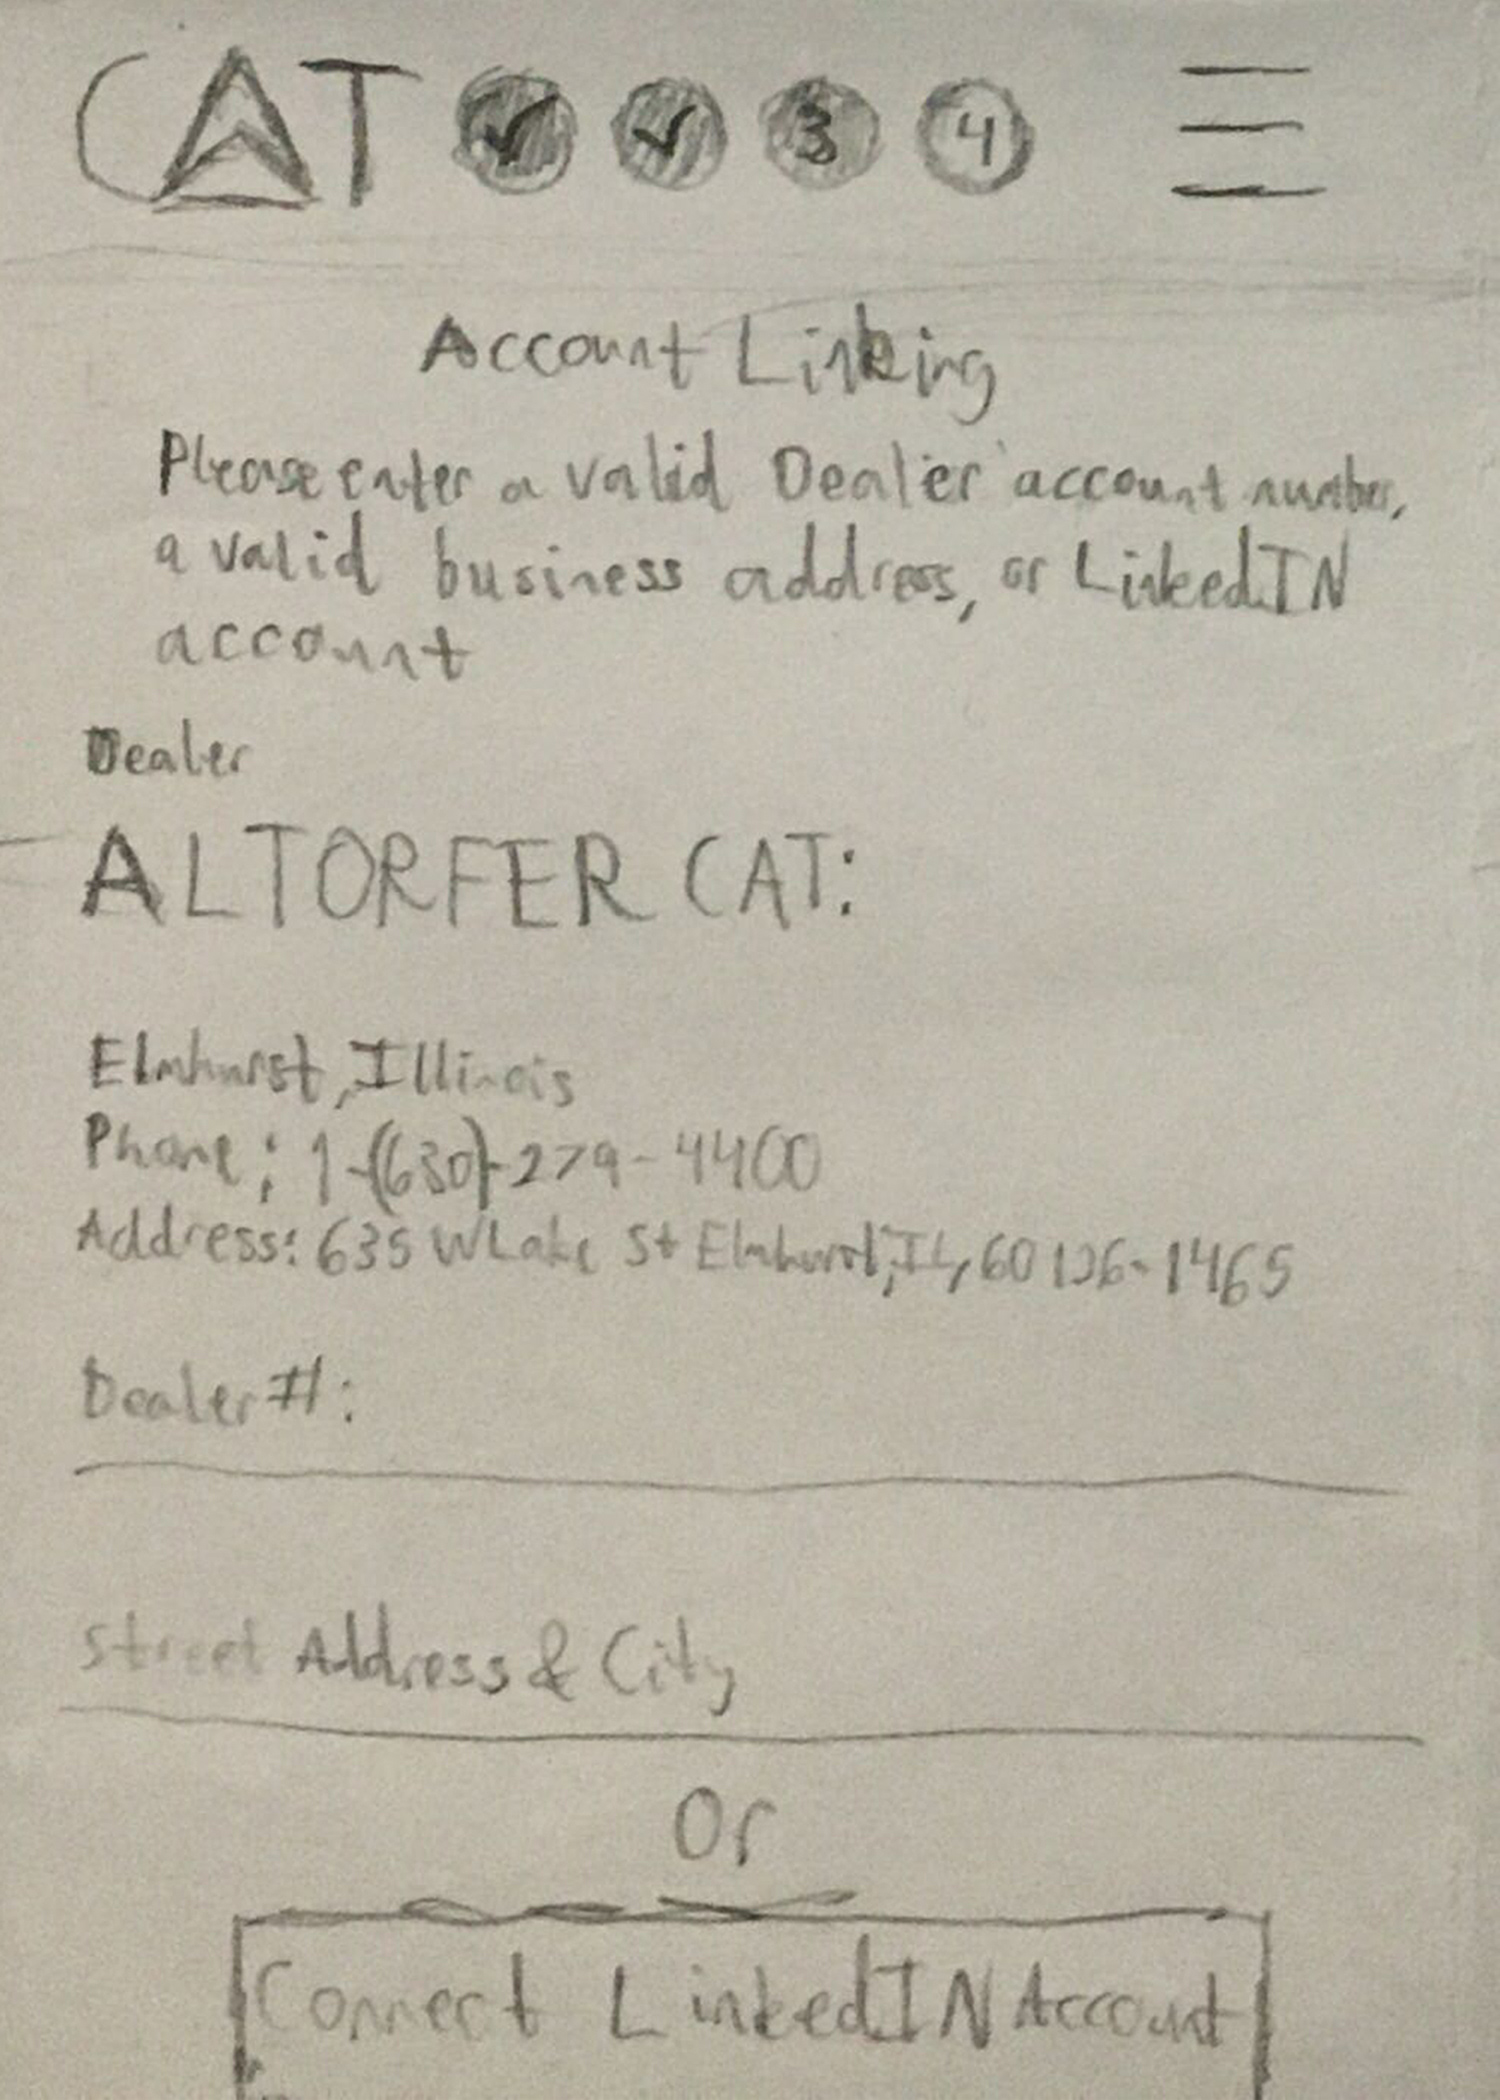 CAT ✓ ✓ 3 4
Account Linking
Please enter a valid Dealer account number,
a valid business address, or LinkedIN
account
Dealer
ALTORFER CAT:
Elmhurst, Illinois
Phone: 1-(630)-279-4400
Address: 635 W Lake St Elmhurst, IL, 60126-1465
Dealer #:
Street Address & City
Or
Connect LinkedIN Account